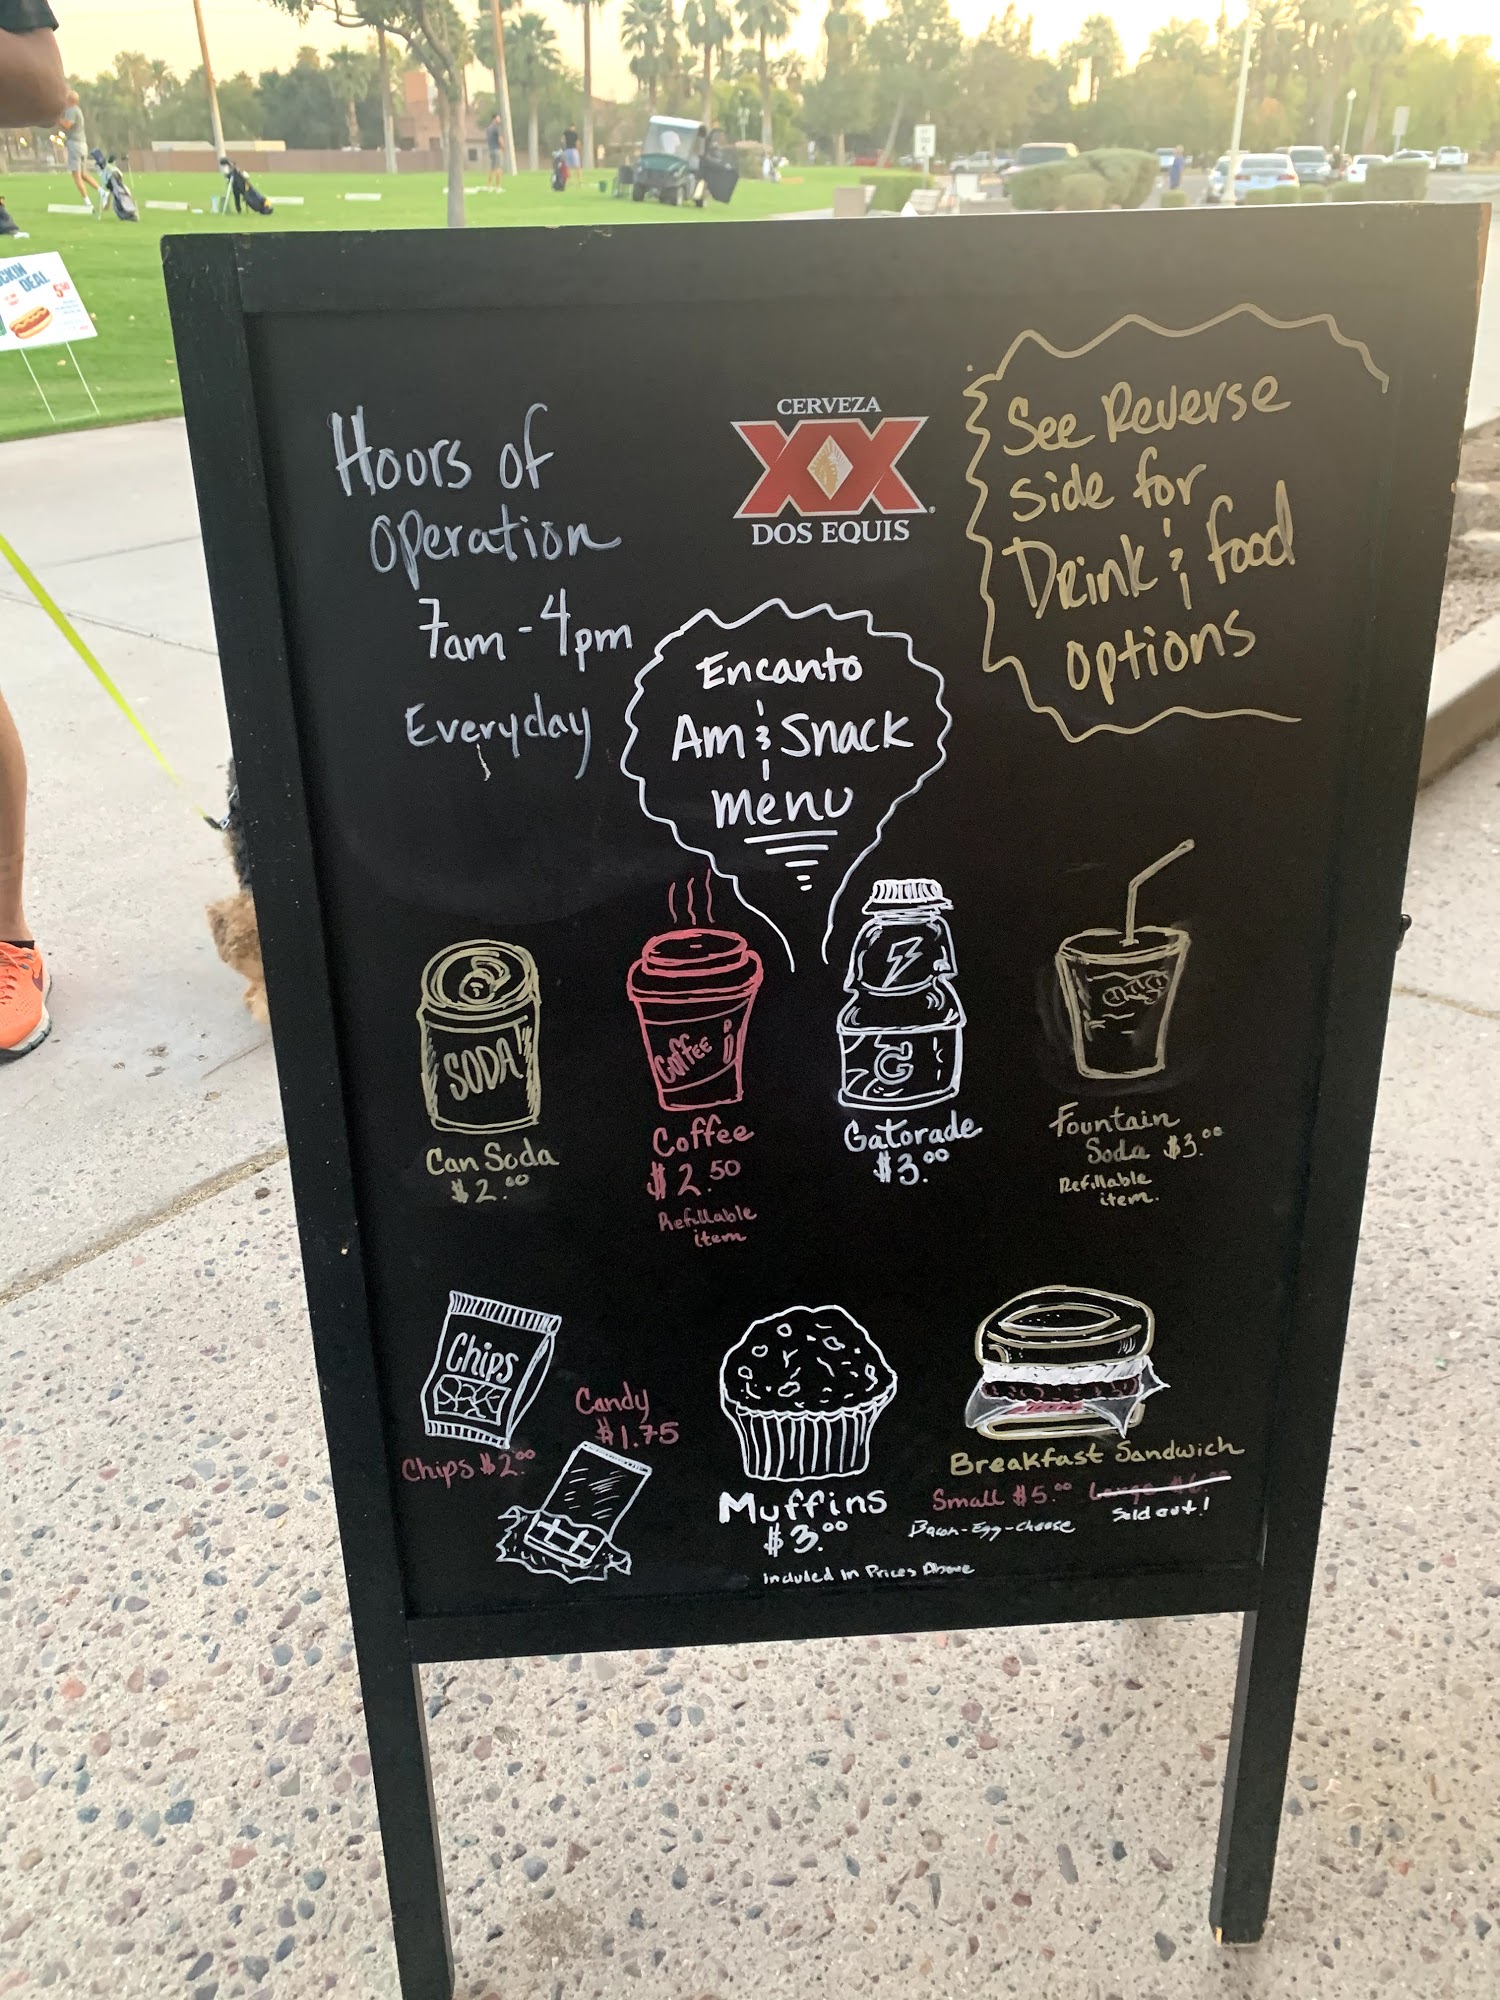 DEAL
Hours of
operation
7am - 4pm
Everyday
CERVEZA
XX
DOS EQUIS
See Reverse
side for
Drink & food
options
Encanto
Am & Snack
menu
SODA!
Can Soda
$2.00
Coffee
Coffee
$2.50
Refillable
item
G
Gatorade
$3.00
Fountain
Soda $3.00
Refillable
item.
Chips
Chips $2.00
Candy
$1.75
Muffins
$3.00
Breakfast Sandwich
Small $5.00 Large $6.00
Bacon-Egg-cheese Sold out!
included in Prices Above